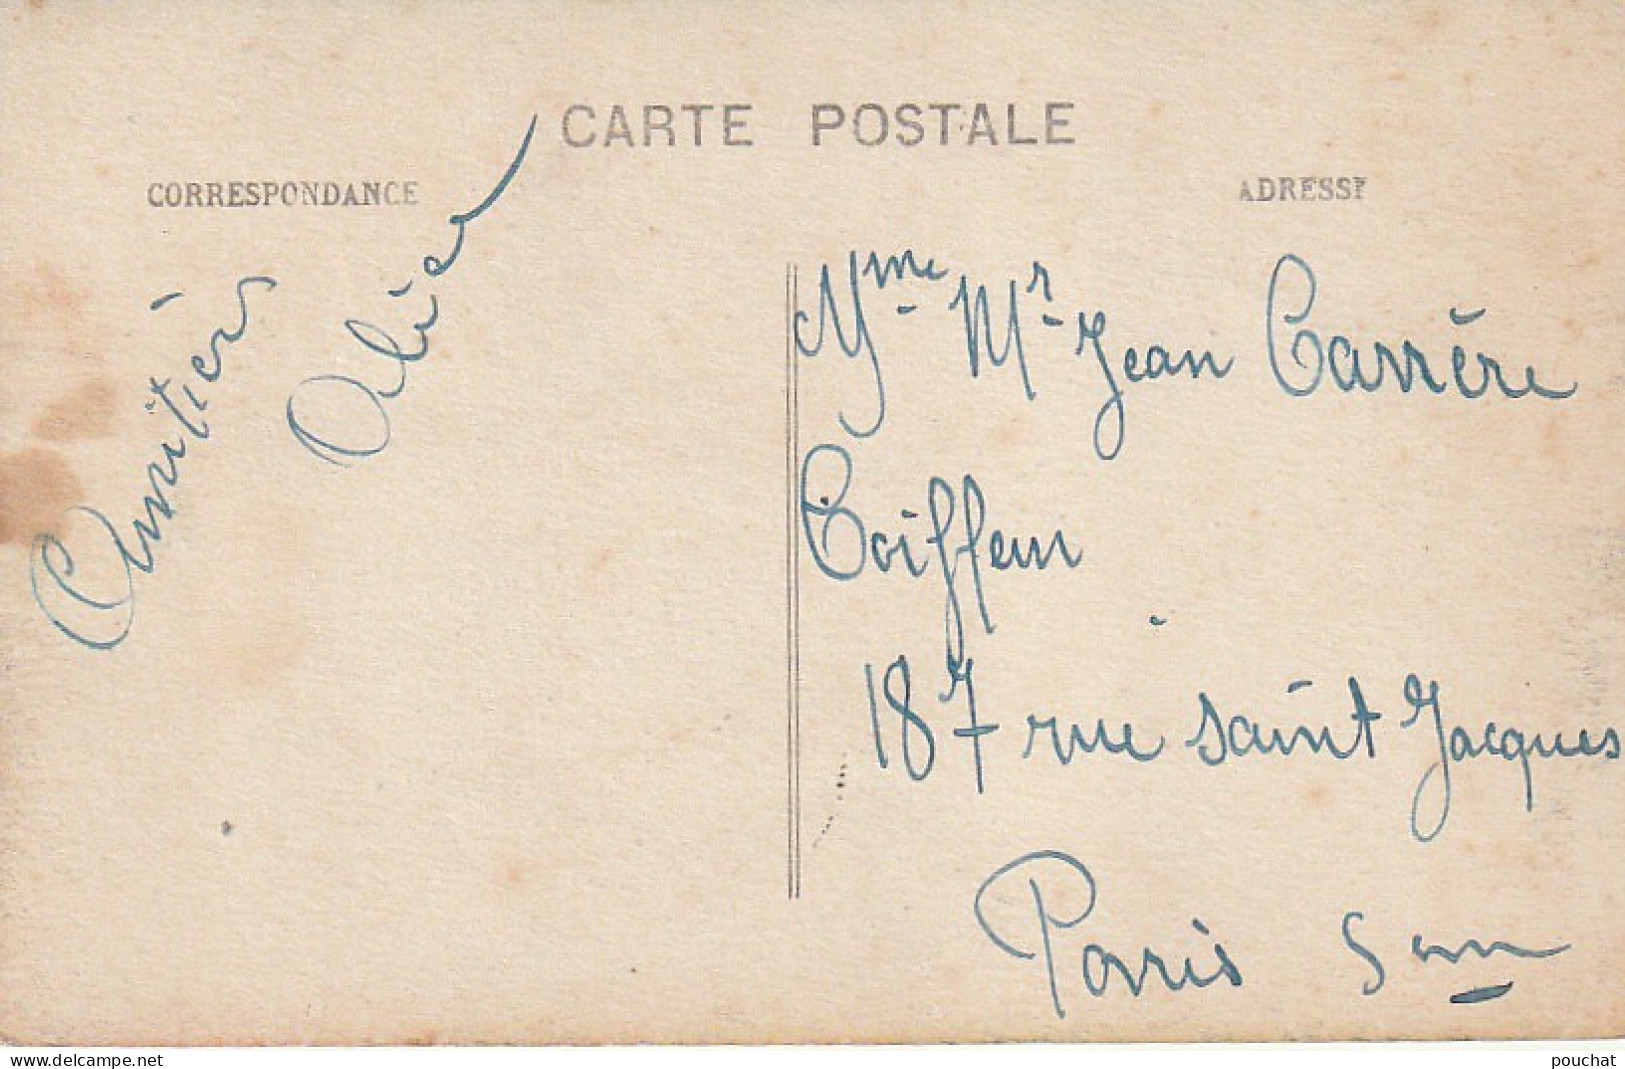 CARTE POSTALE
CORRESPONDANCE
ADRESSE
Amitiés
Mme Mr Jean Carrère
Coiffeur
187 rue Saint Jacques
Paris 5em
www.delcampe.net
pouchat